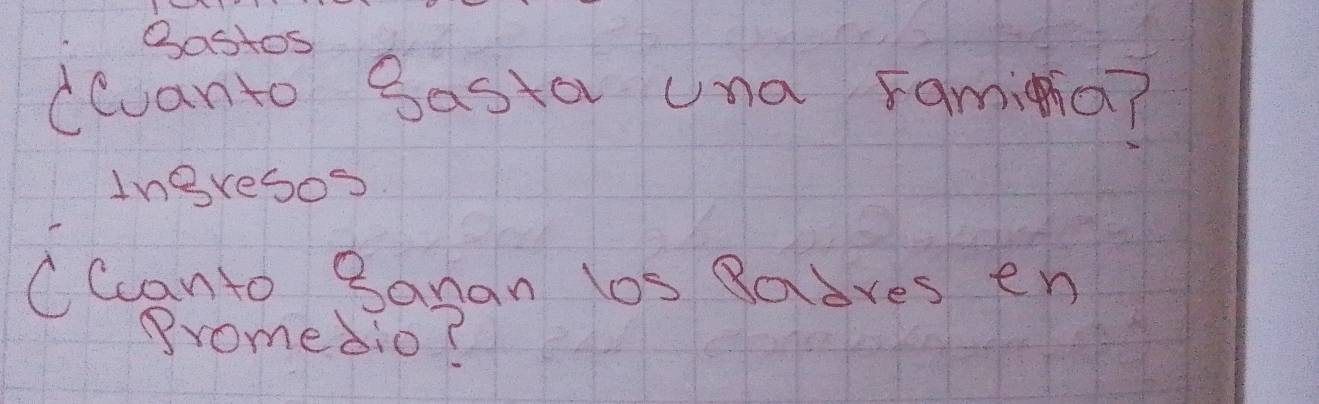 Gastos
¿Cuanto gasta una familia?
Ingresos
¿Cuanto ganan los Padres en
Promedio?